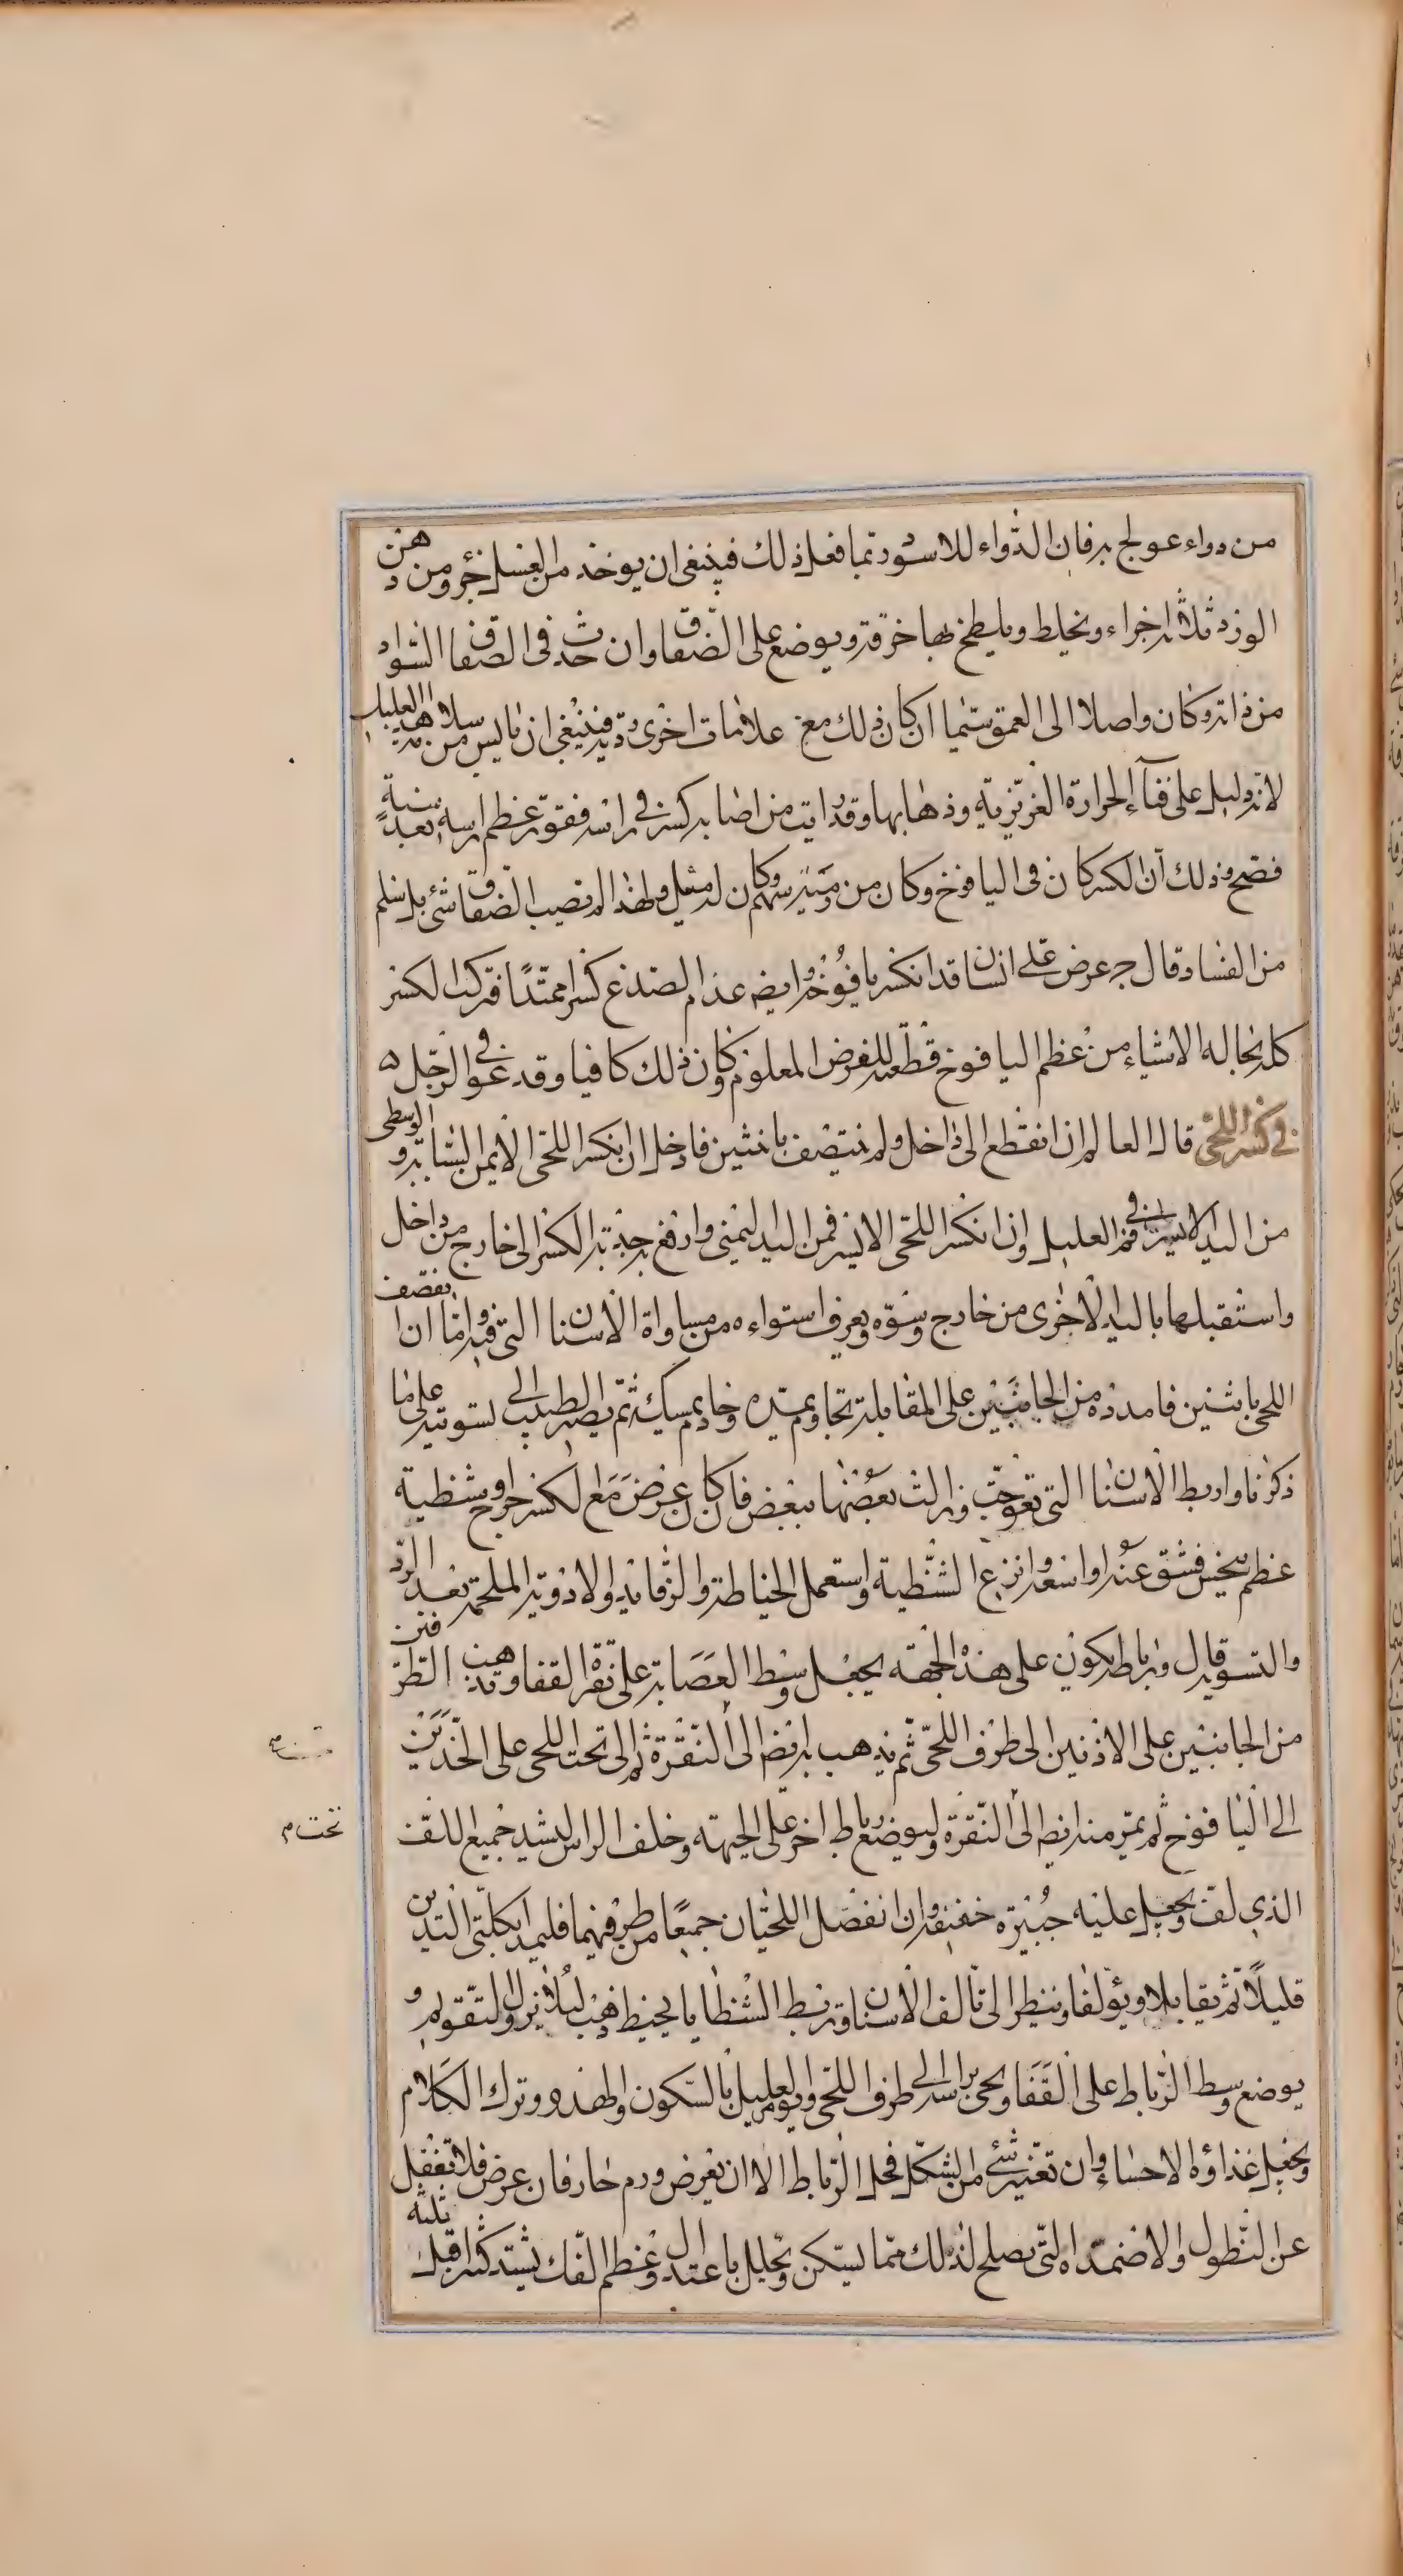 من دواء عولج به فان الدواء للاسود ربما فعل ذلك فينبغى ان يوخذ من العسل جزو ومن دهن
الورد ثلاثه اجزاء ويخلط ويلطخ بها خرقة ويوضع على الصفاق وان حدث فى الصفاق السواد
من ذاته وكان واصلا الى العمق سيما ان كان ذلك مع علامات اخرى ردية فينبغى ان ياس من سلامة هذا العليل
لانه دليل على فناء الحرارة الغريزية وذهابها وقد رايت من اصابه كسر فى راسه فقور عظم راسه بعد سنة
فصح وذلك ان الكسر كان فى اليافوخ وكان من رمية سهم وكان لد مثل ولهذا لم تصيب الصفاق شئ بل سلم
من الفساد قال ج عرض على انسان قد انكسر يافوخه ايضه عظم الصدغ كسرا ممتدا فتركت الكسر
كله بحاله الا شياء من عظم اليافوخ قطعته للغرض المعلوم وكان ذلك كافيا وقد عوفى الرجل ه
فى كسر اللحى قال العالم ان انقطع الى داخل ولم يتقصف باثنين فادخل ان انكسر اللحى الايمن السبابه والوسطى
من اليد الايسر فى فم العليل وان انكسر اللحى الايسر فمن اليد اليمنى وارفع به حدبة الكسر الى خارج من داخل
واستقبلها باليد الاخرى من خارج وسوه ويعرف استواءه من مساواة الاسنان التى فيه واما ان تقصف
اللحى باثنين فامدده من الجانبين على المقابلة بخادم يمده وخادم يمسك ثم يصير الطبيب الى تسويته على ما
ذكرنا واربط الاسنان التى تعوجت وزالت بعضها ببعض فان كان عرض مع الكسر جراح وشظية
عظم ينخس فشق عنه او اسعه وانزع الشظية واستعمل الخياطة والرفائد والادوية الملحمة بعد الرد
والتسوية قال ورباطه يكون على هذه الجهة يجعل وسط العصابة على نقرة القفا ويذهب الطرفين
من الجانبين على الاذنين الى طرف اللحى ثم يذهب به ايضه الى النقرة ثم الى تحت اللحى على الخدين
الى اليافوخ ثم يمر منه ايضه الى النقرة وليوضع رباط اخر على الجبهة وخلف الراس ليشد جميع اللف
تحت م
الذى لف ويجعل عليه جبيرة خفيفة وان انفصل اللحيان جميعا من طرفيهما فليمد بكلتى اليدين
قليلا ثم يقابلا ويؤلفا وينظر الى تالف الاسنان وتربط الشظايا بخيط ذهب لئلا يزول التقويم و
يوضع وسط الرباط على القفا ويجئ براسه الى طرف اللحى ويومر العليل بالسكون والهدو وترك الكلام
ويجعل غذاؤه الاحساء وان تغير شئ من الشكل فحل الرباط الا ان يعرض ورم حار فان عرض فلا تغفل
عن النطول والاضمدة التى تصلح لذلك مما يسكن ويحلل باعتدال وعظم الفك يشتد كثرا قبل ثلثة